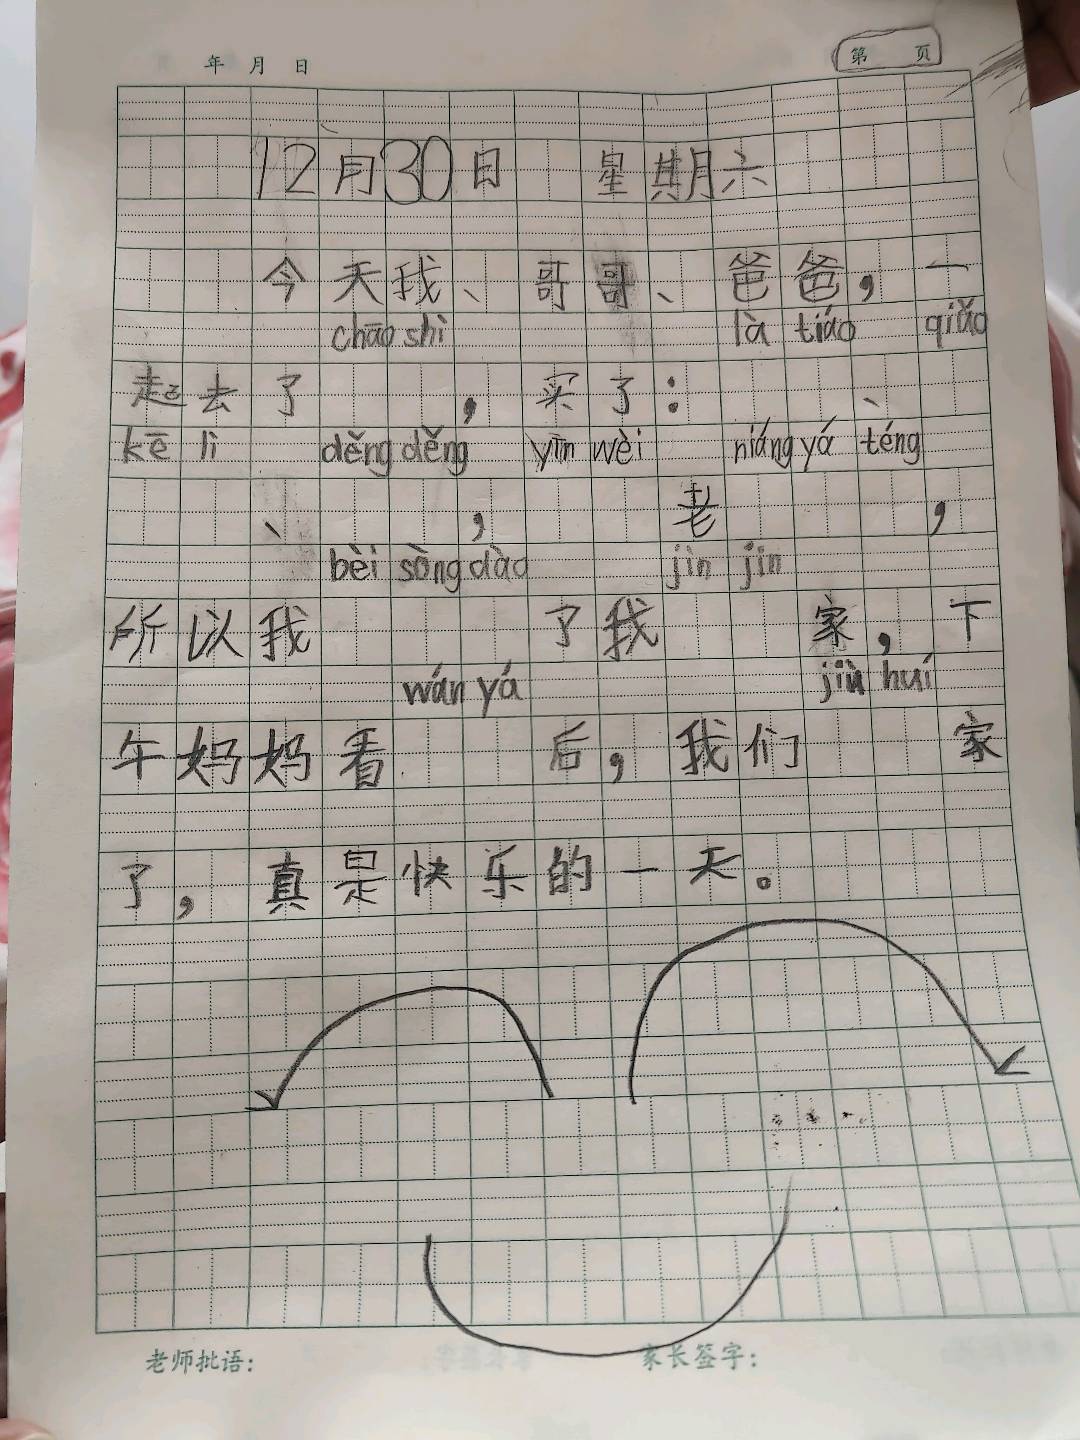 年 月 日
第 页
12月30日 星期六
今天我、哥哥、爸爸,一
chāo shì là tiáo qiǎo
起去了 ,买了: 、
kē lì děng děng yīn wèi niáng yá téng
、 , 老 ,
bèi sòng dào jìn jin
所以我 了我 家,下
wán yá jiù huí
午妈妈看 后,我们 家
了,真是快乐的一天。
老师批语:
家长签字: